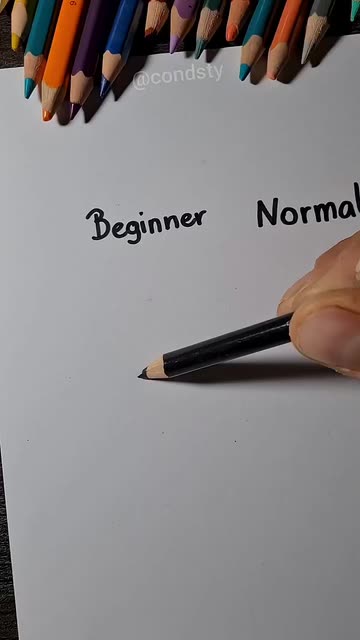 @condsty
Beginner Normal